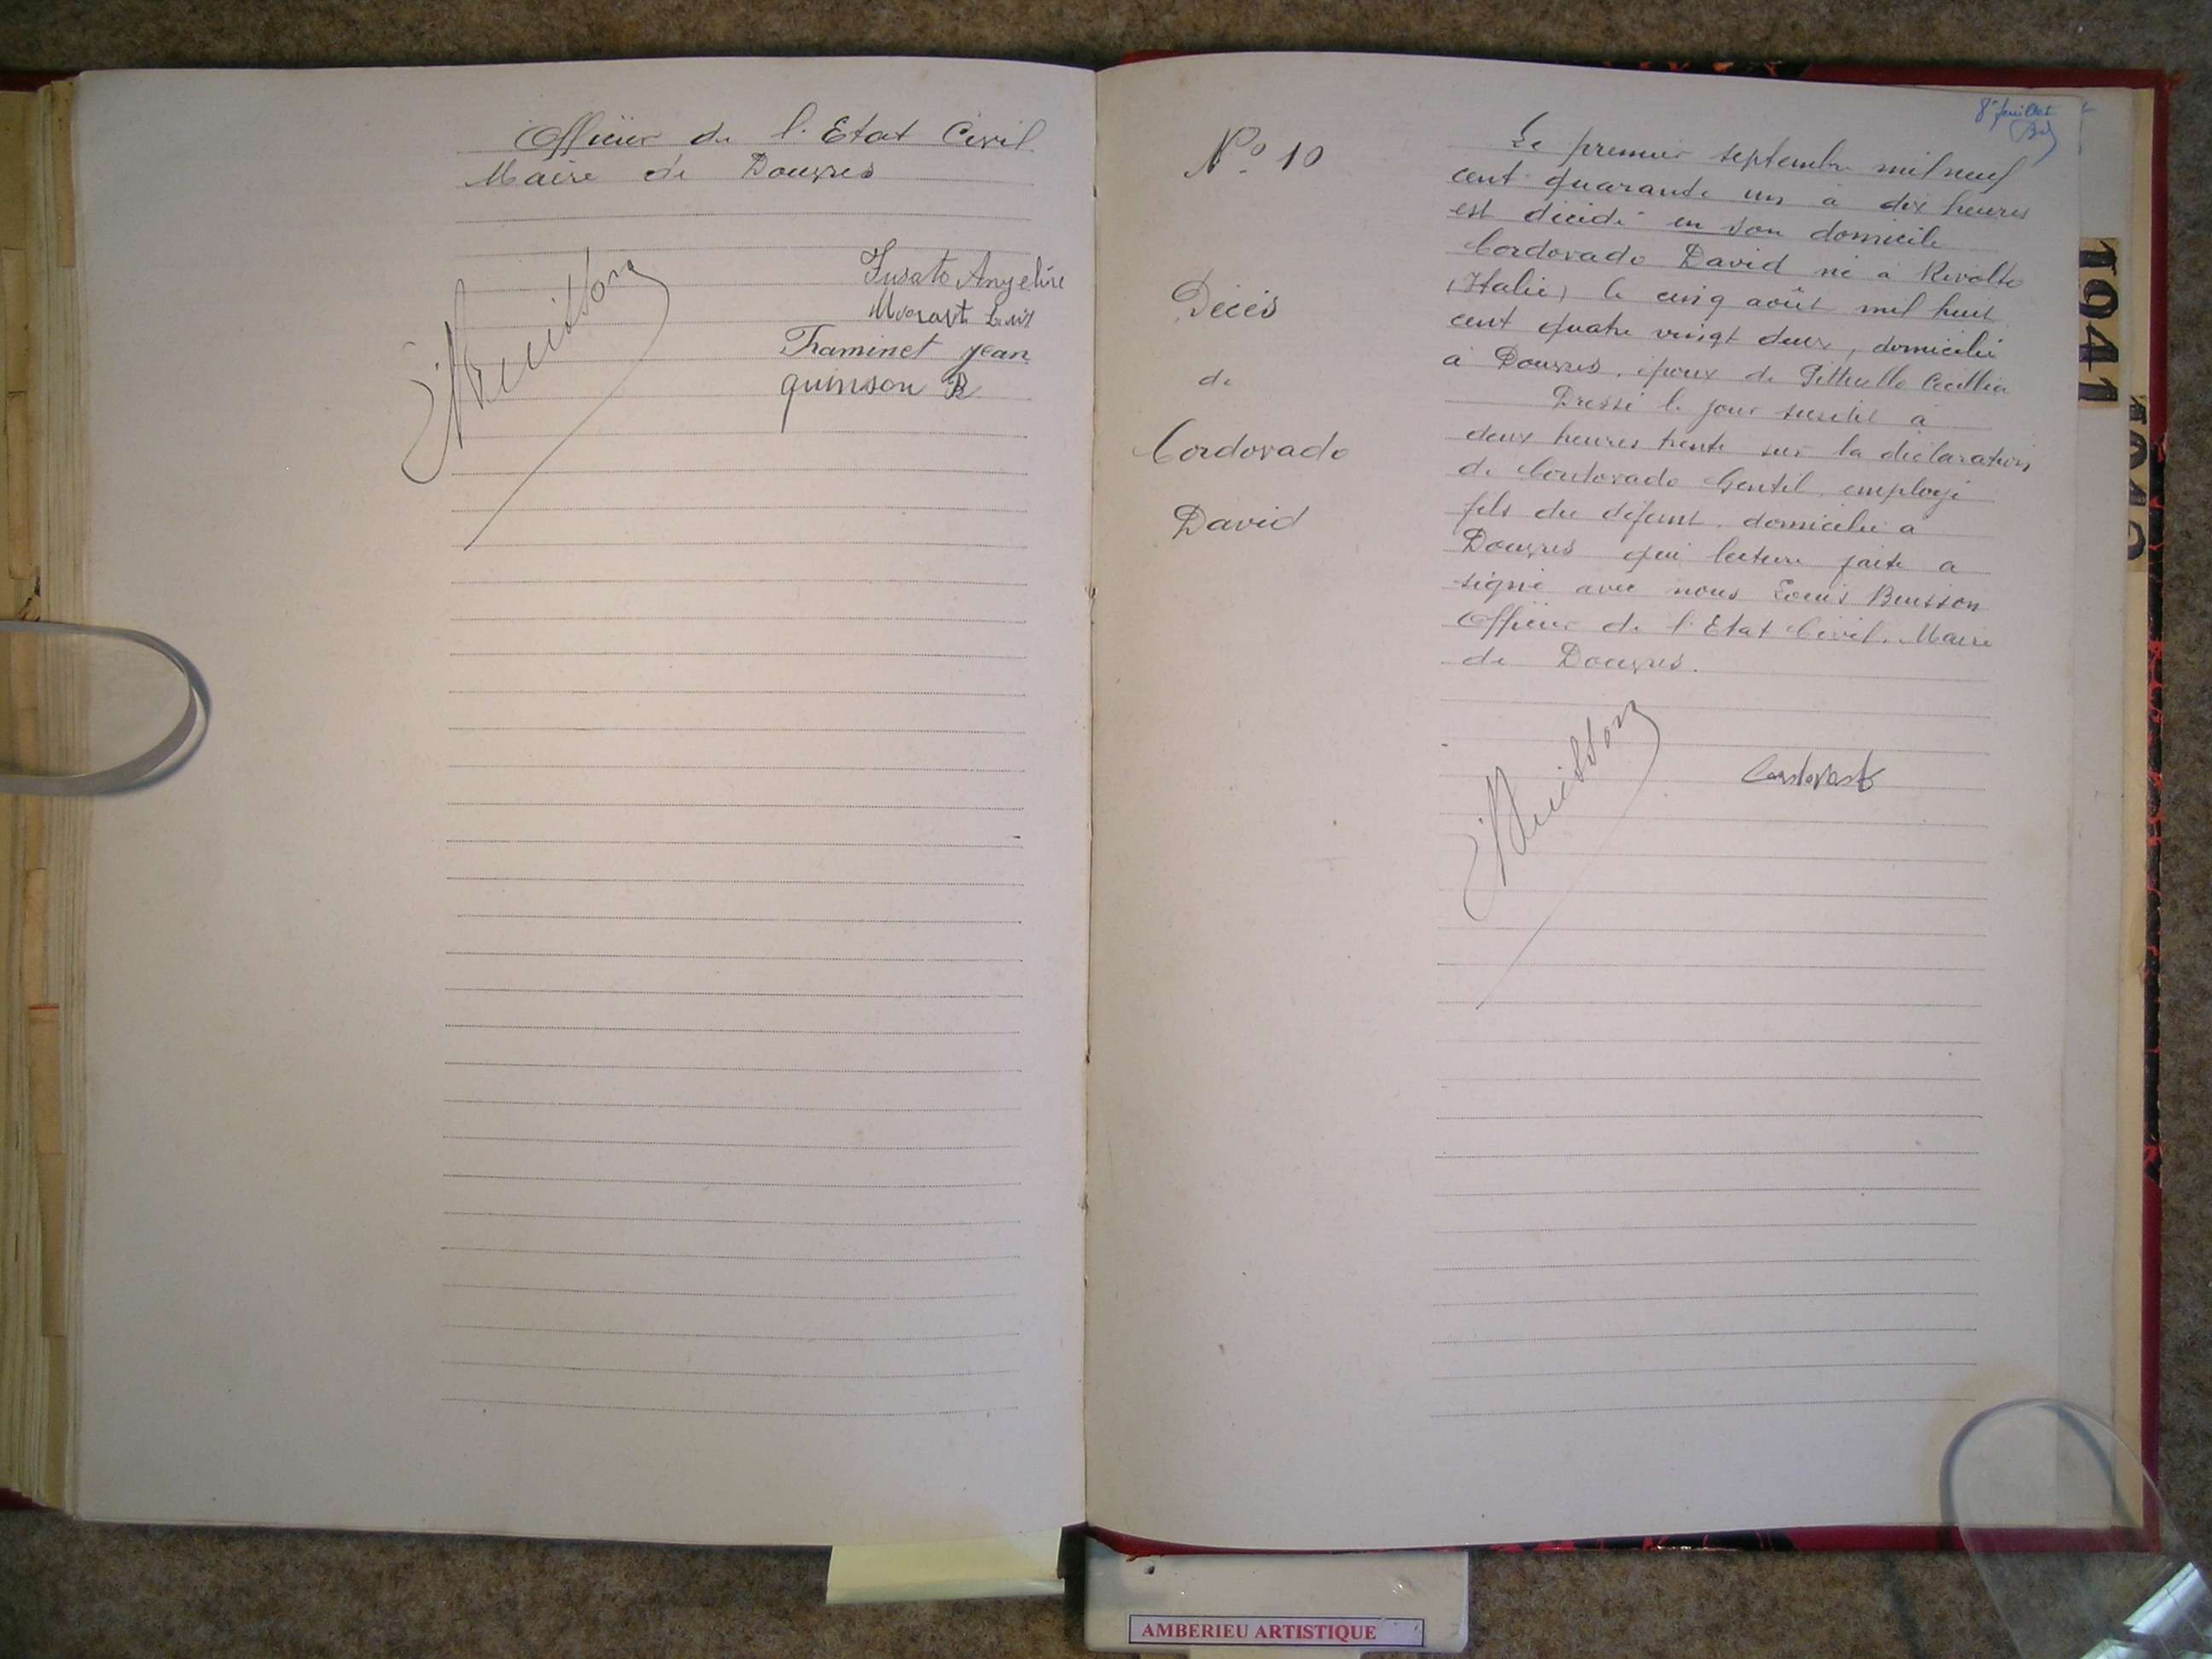 Officier de l'Etat Civil
Maire de Douvres
Fusato Angeline
Traminet Jean
quinson B
LBuisson
8e feuillet
N° 10
Décès
de
Cordovado
David
Le premier septembre mil neuf
cent quarante un à dix heures
est décédé en son domicile
Cordovado David né à Rivolto
(Italie) le cinq août mil huit
cent quatre vingt deux, domicilié
à Douvres, époux de Cecillia
Dressé le jour susdit à
deux heures trente sur la déclaration
de Cordovado Gentil, employé
fils du défunt, domicilié à
Douvres qui lecture faite a
signé avec nous Louis Buisson
Officier de l'Etat Civil, Maire
de Douvres.
Cordovado
LBuisson
1941
AMBERIEU ARTISTIQUE